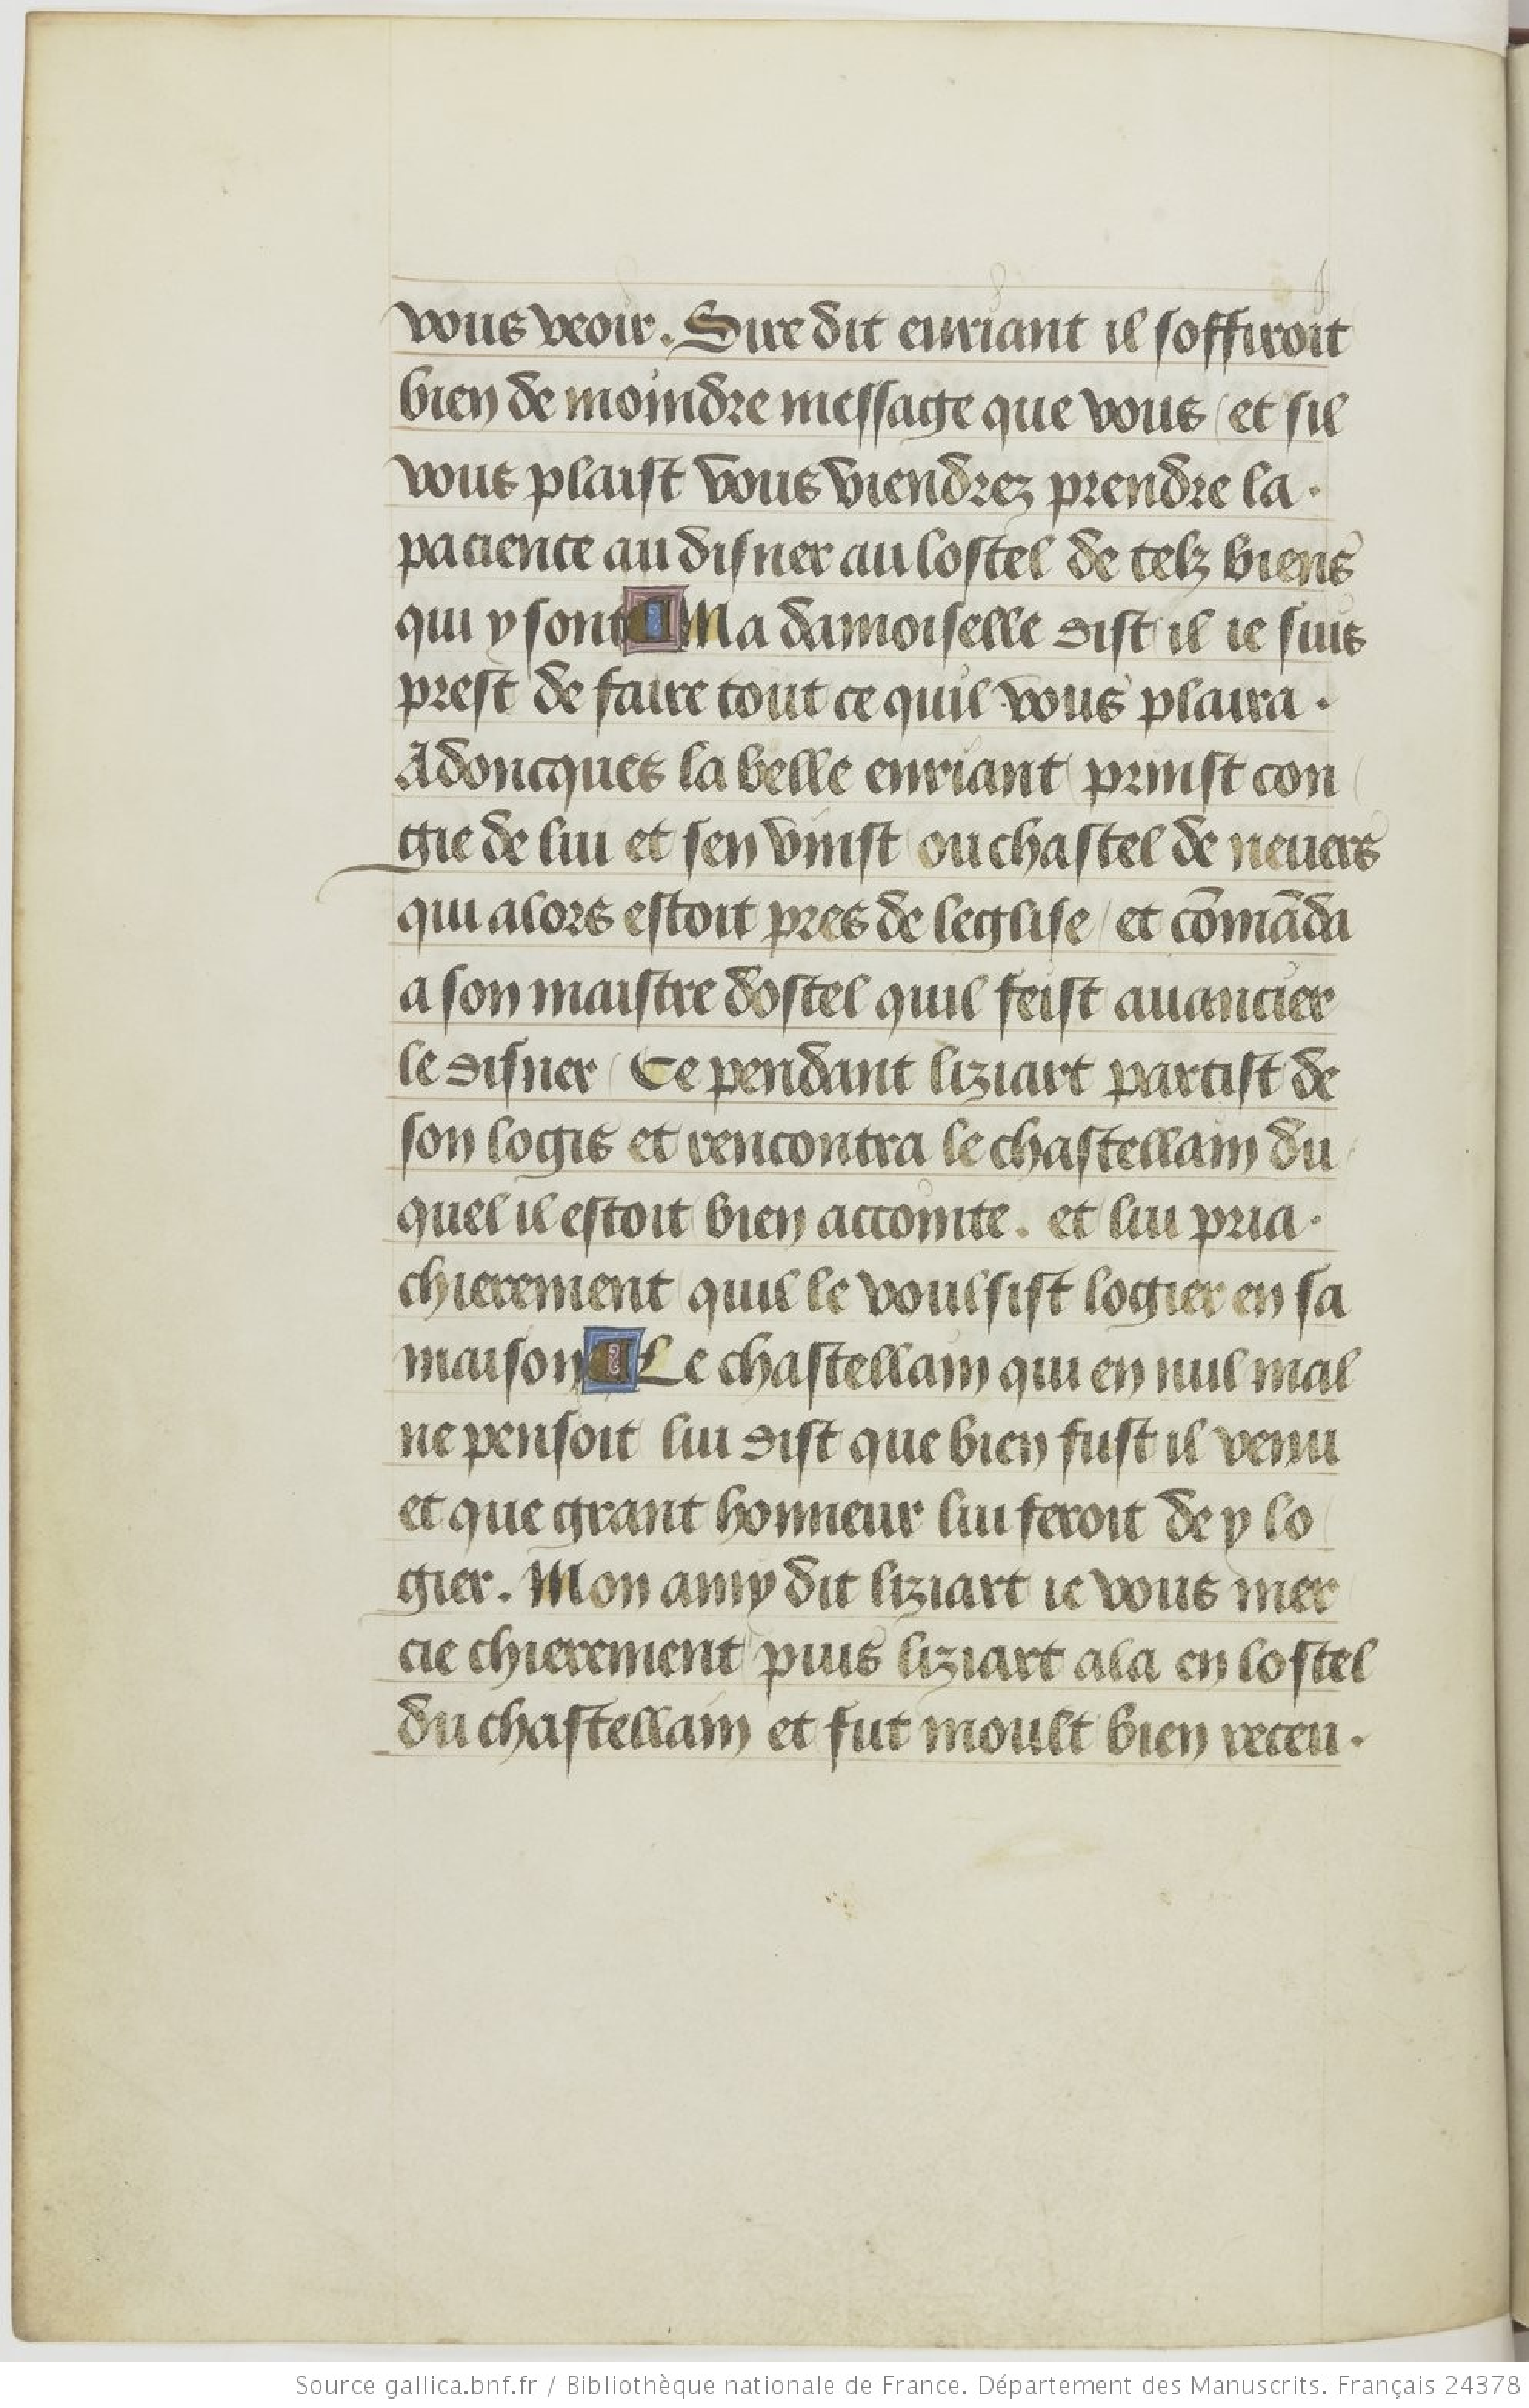 vous veoir. Sire dit euriant il soffiroit
bien de moindre message que vous / et sil
vous plaist vous viendrez prendre la.
pacience au disner au lostel de telz biens
qui y sont ¶ Ma damoiselle dist il ie suis
prest de faire tout ce quil vous plaira.
Adoncques la belle euriant prinst con
gie de lui et sen vinst ou chastel de neuers
qui alors estoit pres de leglise / et cōmāda
a son maistre dostel quil feist auancier
le disner / Ce pendant liziart partist de
son logis et rencontra le chastellain du
quel il estoit bien accointe. et lui pria.
chierement quil le voulsist logier en sa
maison ¶ Le chastellain qui en nul mal
ne pensoit lui dist que bien fust il venu
et que grant honneur lui feroit de y lo
gier. Mon amy dit liziart ie vous mer
cie chierement puis liziart ala en lostel
du chastellain et fut moult bien receu.
Source gallica.bnf.fr / Bibliothèque nationale de France. Département des Manuscrits. Français 24378